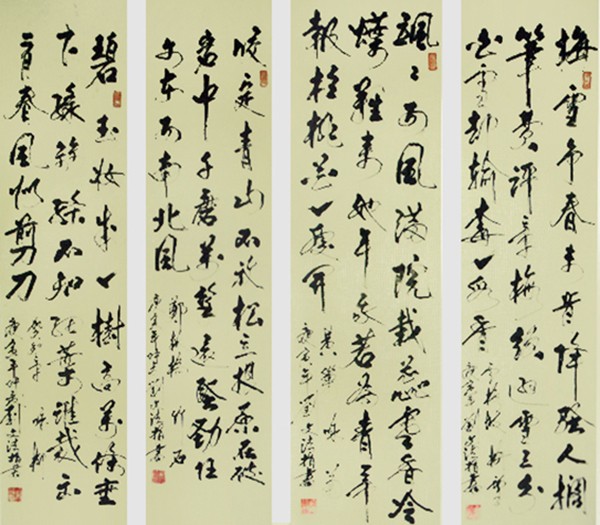 梅雪争春未肯降骚人搁
笔费评章梅须逊雪三分
白雪却输梅一段香
飒飒西风满院栽蕊寒香冷
蝶难来他年我若为青帝
报与桃花一处开
黄巢 咏菊
咬定青山不放松立根原在破
岩中千磨万击还坚劲任
尔东西南北风
郑板桥 竹石
碧玉妆成一树高万条垂
下绿丝绦不知细叶谁裁出
二月春风似剪刀
贺知章 咏柳